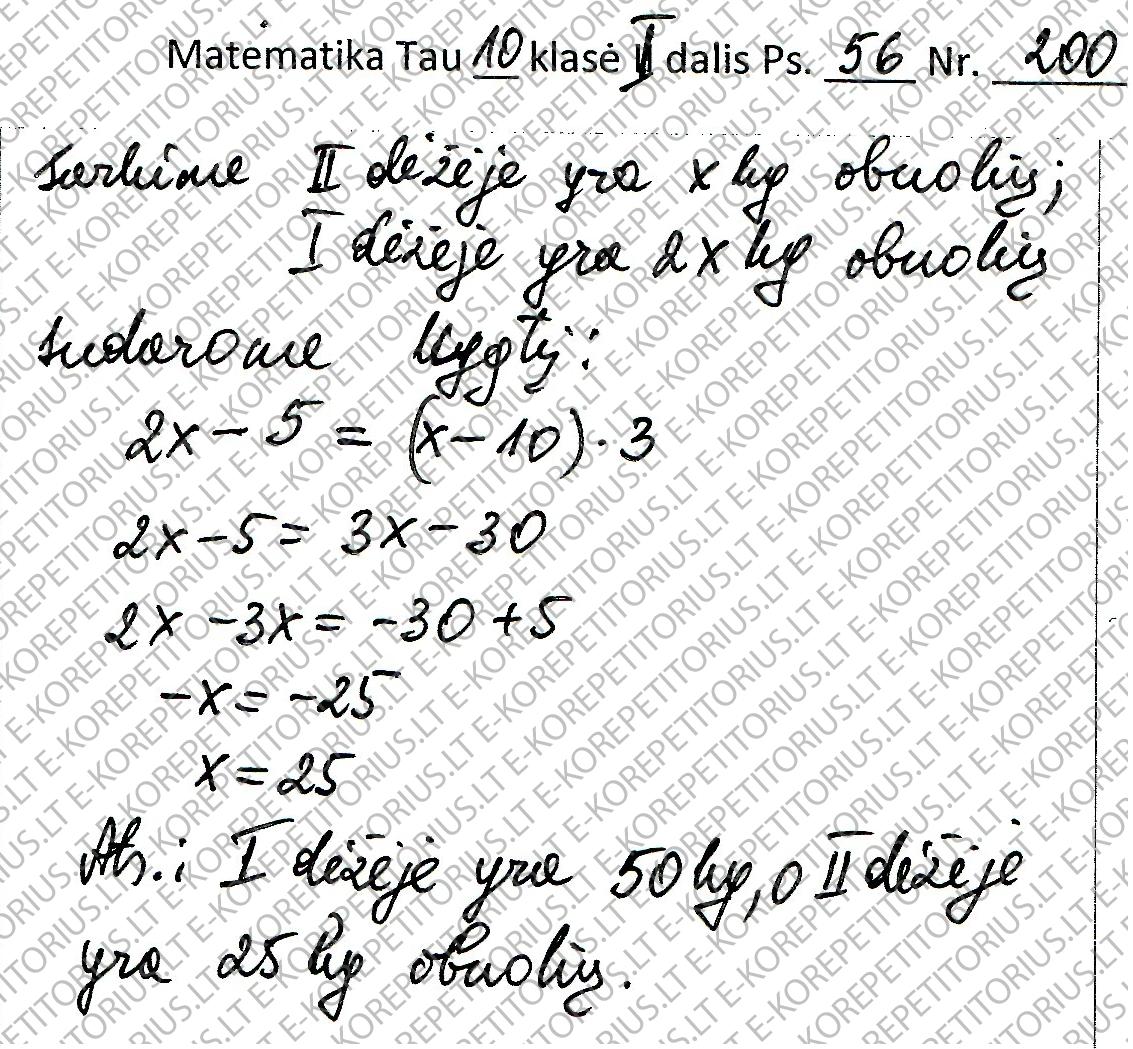 Matematika Tau 10 klasė II dalis Ps. 56 Nr. 200
Tarkime II dėžėje yra x kg obuolių;
I dėžėje yra 2x kg obuolių
Sudarome lygtį:
2x - 5 = (x - 10) · 3
2x - 5 = 3x - 30
2x - 3x = -30 + 5
-x = -25
x = 25
Ats.: I dėžėje yra 50 kg, o II dėžėje
yra 25 kg obuolių.
E-KOREPETITORIUS.LT